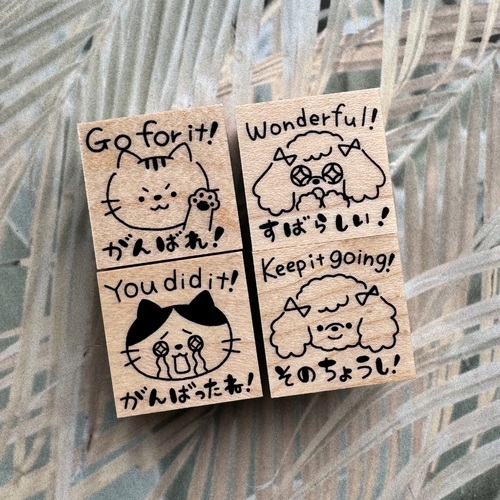 Go for it!
がんばれ!
Wonderful!
すばらしい!
You did it!
がんばったね!
Keep it going!
そのちょうし!